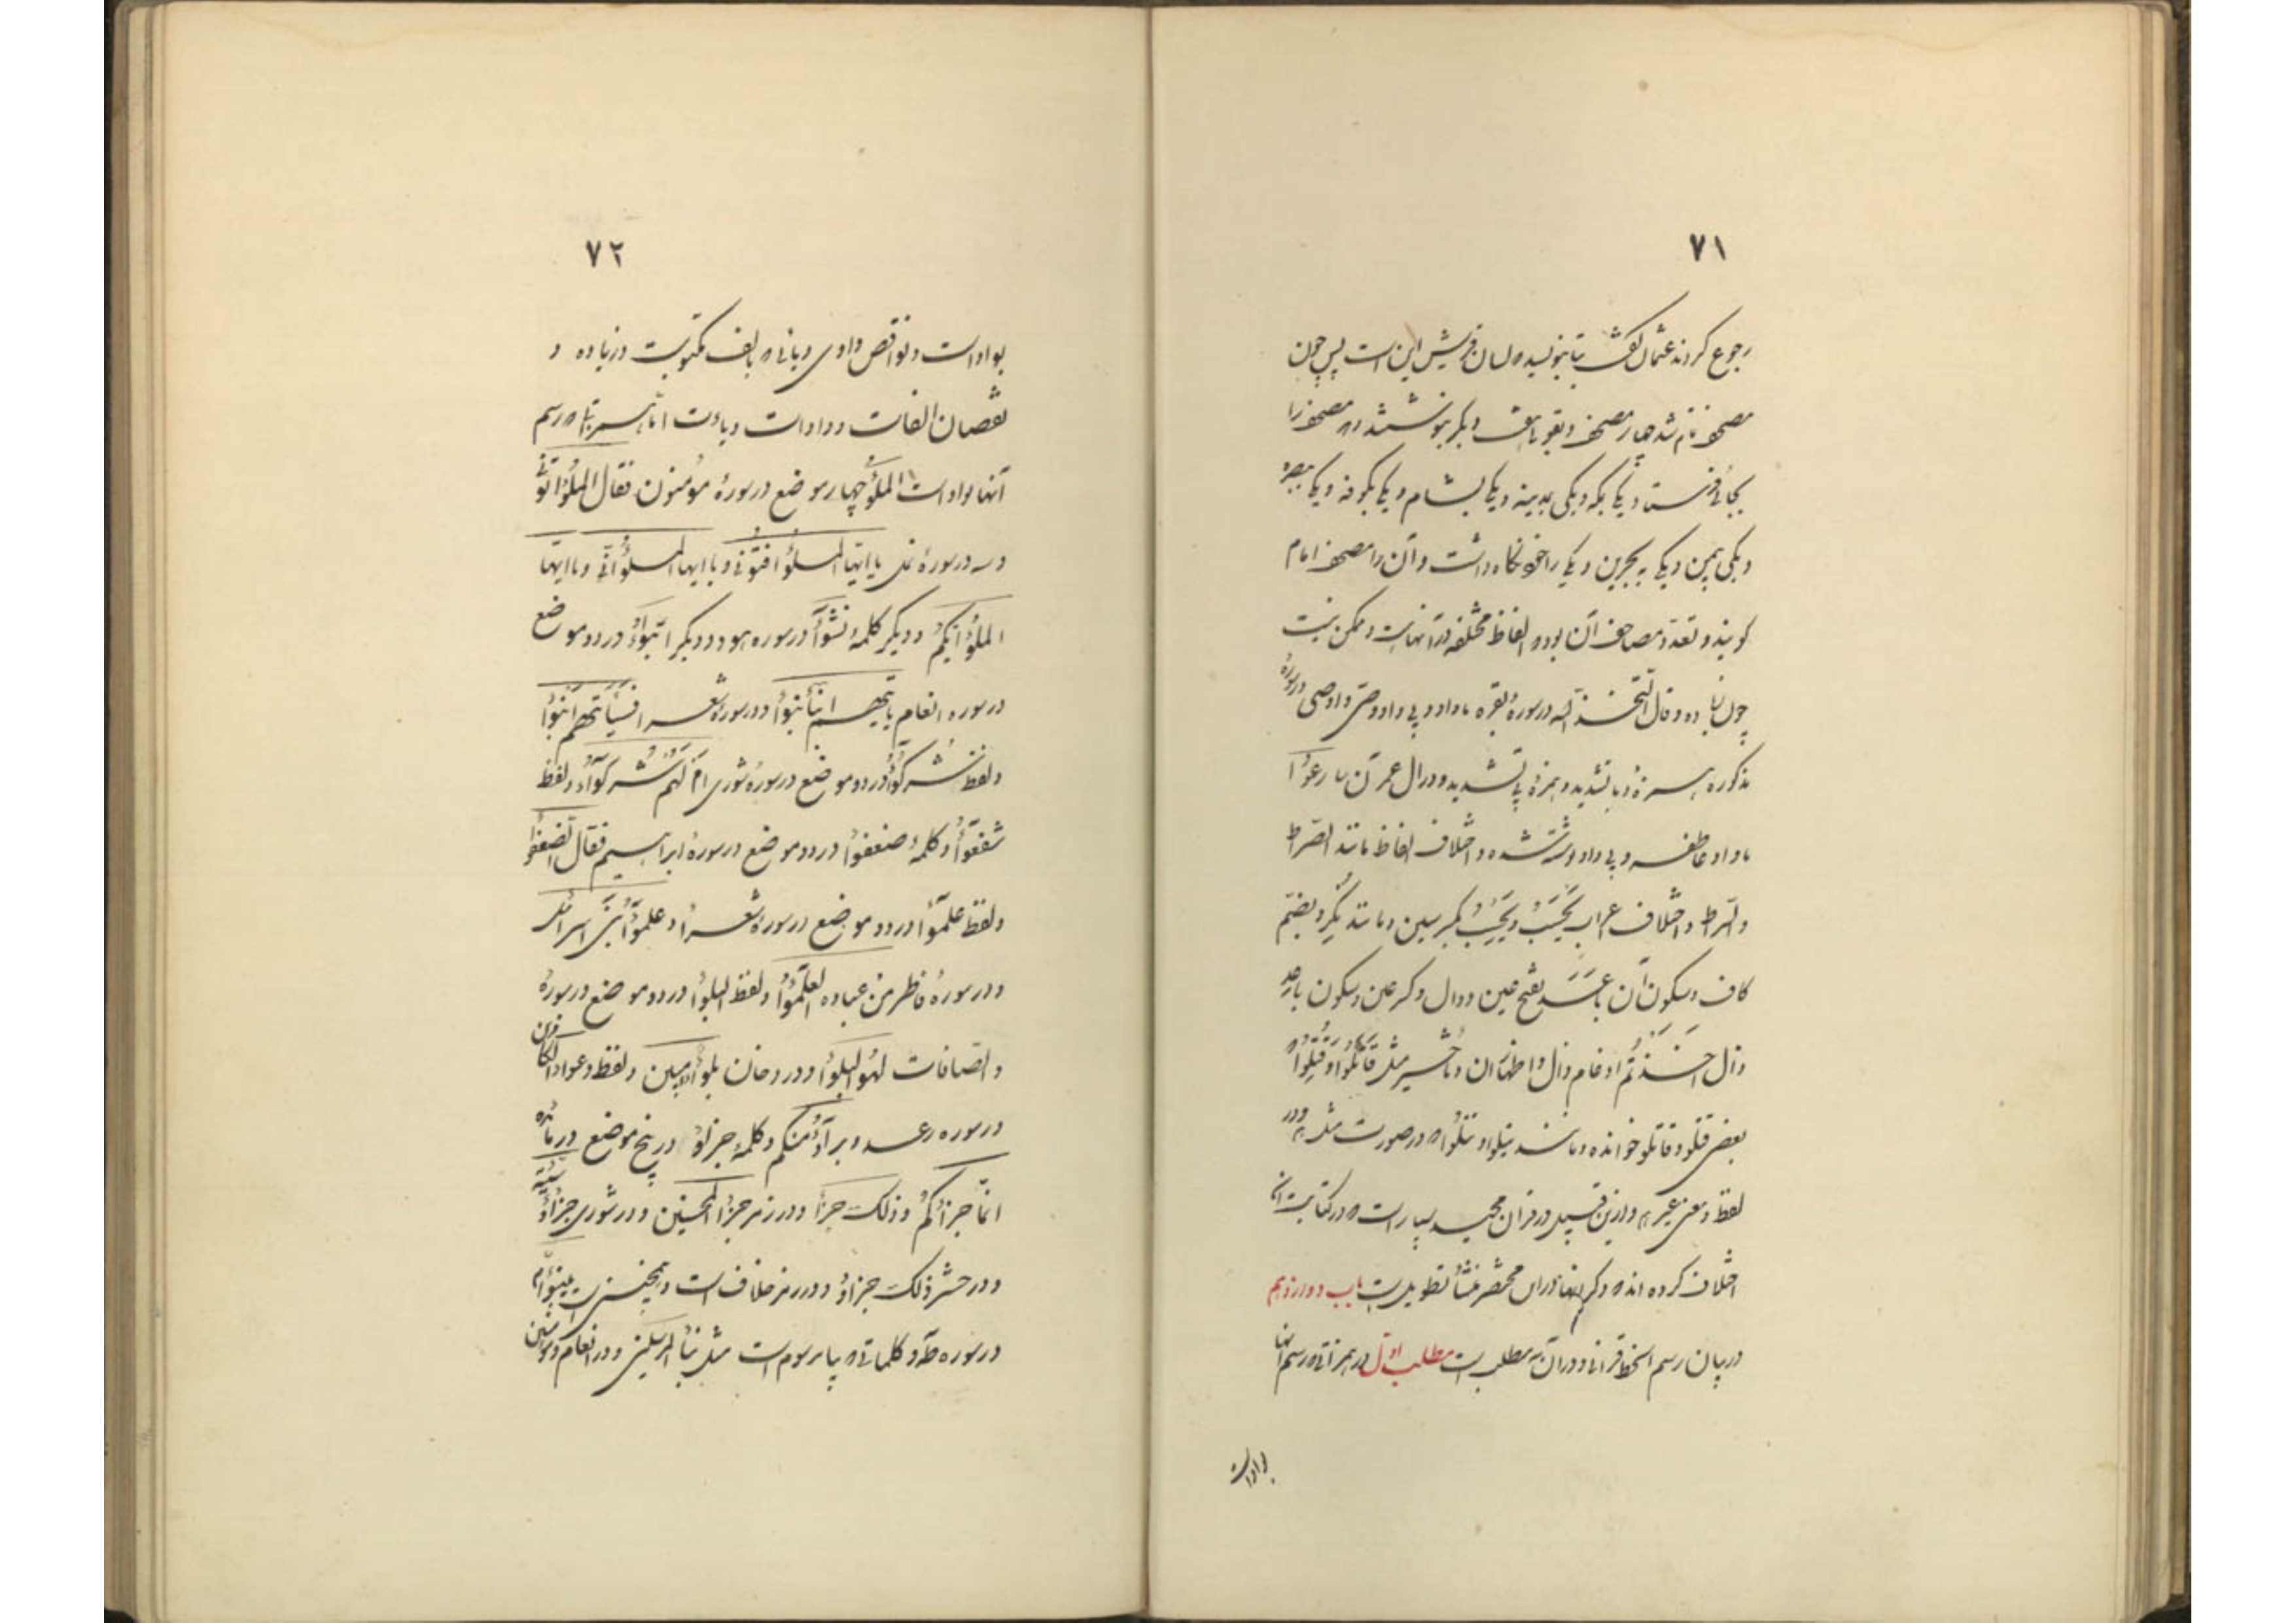 ۷۱
رجوع کردند عثمان گفت بتا بنویسید که لسان قریش این است پس چون
مصحف تمام شد چهار مصحف دیگر بنوشتند و هر مصحف را
بجائی فرستاد یکی بمکه و یکی بمدینه و یکی بشام و یکی بکوفه و یکی ببصره
و یکی بیمن و یکی به بحرین و یکی را خود نگاه داشت و آن را مصحف امام
گویند و تعدد مصاحف آن بود که الفاظ مختلفه در آنهاست و ممکن نیست
و قال اتّخذ الله در سورهٔ بقره با واو و بی واو و وصّی و اوصی در سورهٔ
مذکوره و در ال عمران سارعُوٓا
با واو عاطفه و بی واو نوشته شده و اختلاف الفاظ مانند الصّراط
و السّراط و اختلاف اعراب یَحسَبُ و یَحسِبُ بکسر سین و مانند نُکُر بضمّ
کاف و سکون آن بفتح عین و دال و کسر عین و سکون
ذال اخذتم ادغام ذال و اظهار آن مثل قاتَلُوا و قُتِلُوا که
بعضی قتلو و قاتلو خوانده و مانند یتلوا و تتلُوا که در صورت مثل و در
لفظ و معنی غیرند و ازین قبیل در قران مجید بسیار است که در کتابت آن
اختلاف کرده اند که ذکر اینها در این مختصر منشأ تطویل است باب دوازدهم
در بیان رسم الخط قرانی و در آن سه مطلب است مطلب اوّل در همزاتی که رسم آنها
بواو است
۷۲
بواو است و نواقص واوی و یائی که بالف مکتوبست و زیاده و
نقصان الفات و واوات و یاءات امّا همزهائی که رسم
آنها بواو است الملؤا چهار موضع در سورهٔ مؤمنون فقال الملؤا
و سه در سورهٔ نمل یا ایّها الملؤا افتونی و یا ایها الملؤا انّی و یا ایّها
الملؤا ایّکم و دیگر کلمهٔ نشٰؤا در سوره هود و دیگر انبٰؤا در دو موضع
در سوره انعام یاتیهم انبٰؤا و در سورهٔ شعرا فسیأتیهم انبٰؤا
و لفظ شرکٰؤا در دو موضع در سورهٔ شوری ام لهم شرکٰؤا و لفظ
شفعٰؤا و کلمهٔ ضعفٰؤا در دو موضع در سورهٔ ابراهیم فقال الضعفٰؤا
و لفظ علمٰؤا در دو موضع در سورهٔ شعرا و علمٰؤا بنی اسرائیل
و در سورهٔ فاطر من عباده العلمٰؤا و لفظ البلٰؤا در دو موضع در سورهٔ
و الصّافات لهو البلٰؤا و در دخان بلٰؤا مبین و لفظ دعٰؤا الکافرین
در سوره رعد و برآؤا منکم و کلمهٔ جزاؤا در پنج موضع در مائده
انّما جزاؤکم و ذلک جزٰؤا و در زمر جزٰؤا المحسنین و در شوری جزٰؤا سیّئة
و در حشر ذلک جزاؤا و در زمر خلاف است و همچنین است یبنؤمّ
در سوره طه و کلماتی که بیا مرسوم است مثل نبأ المرسلین و در انعام و